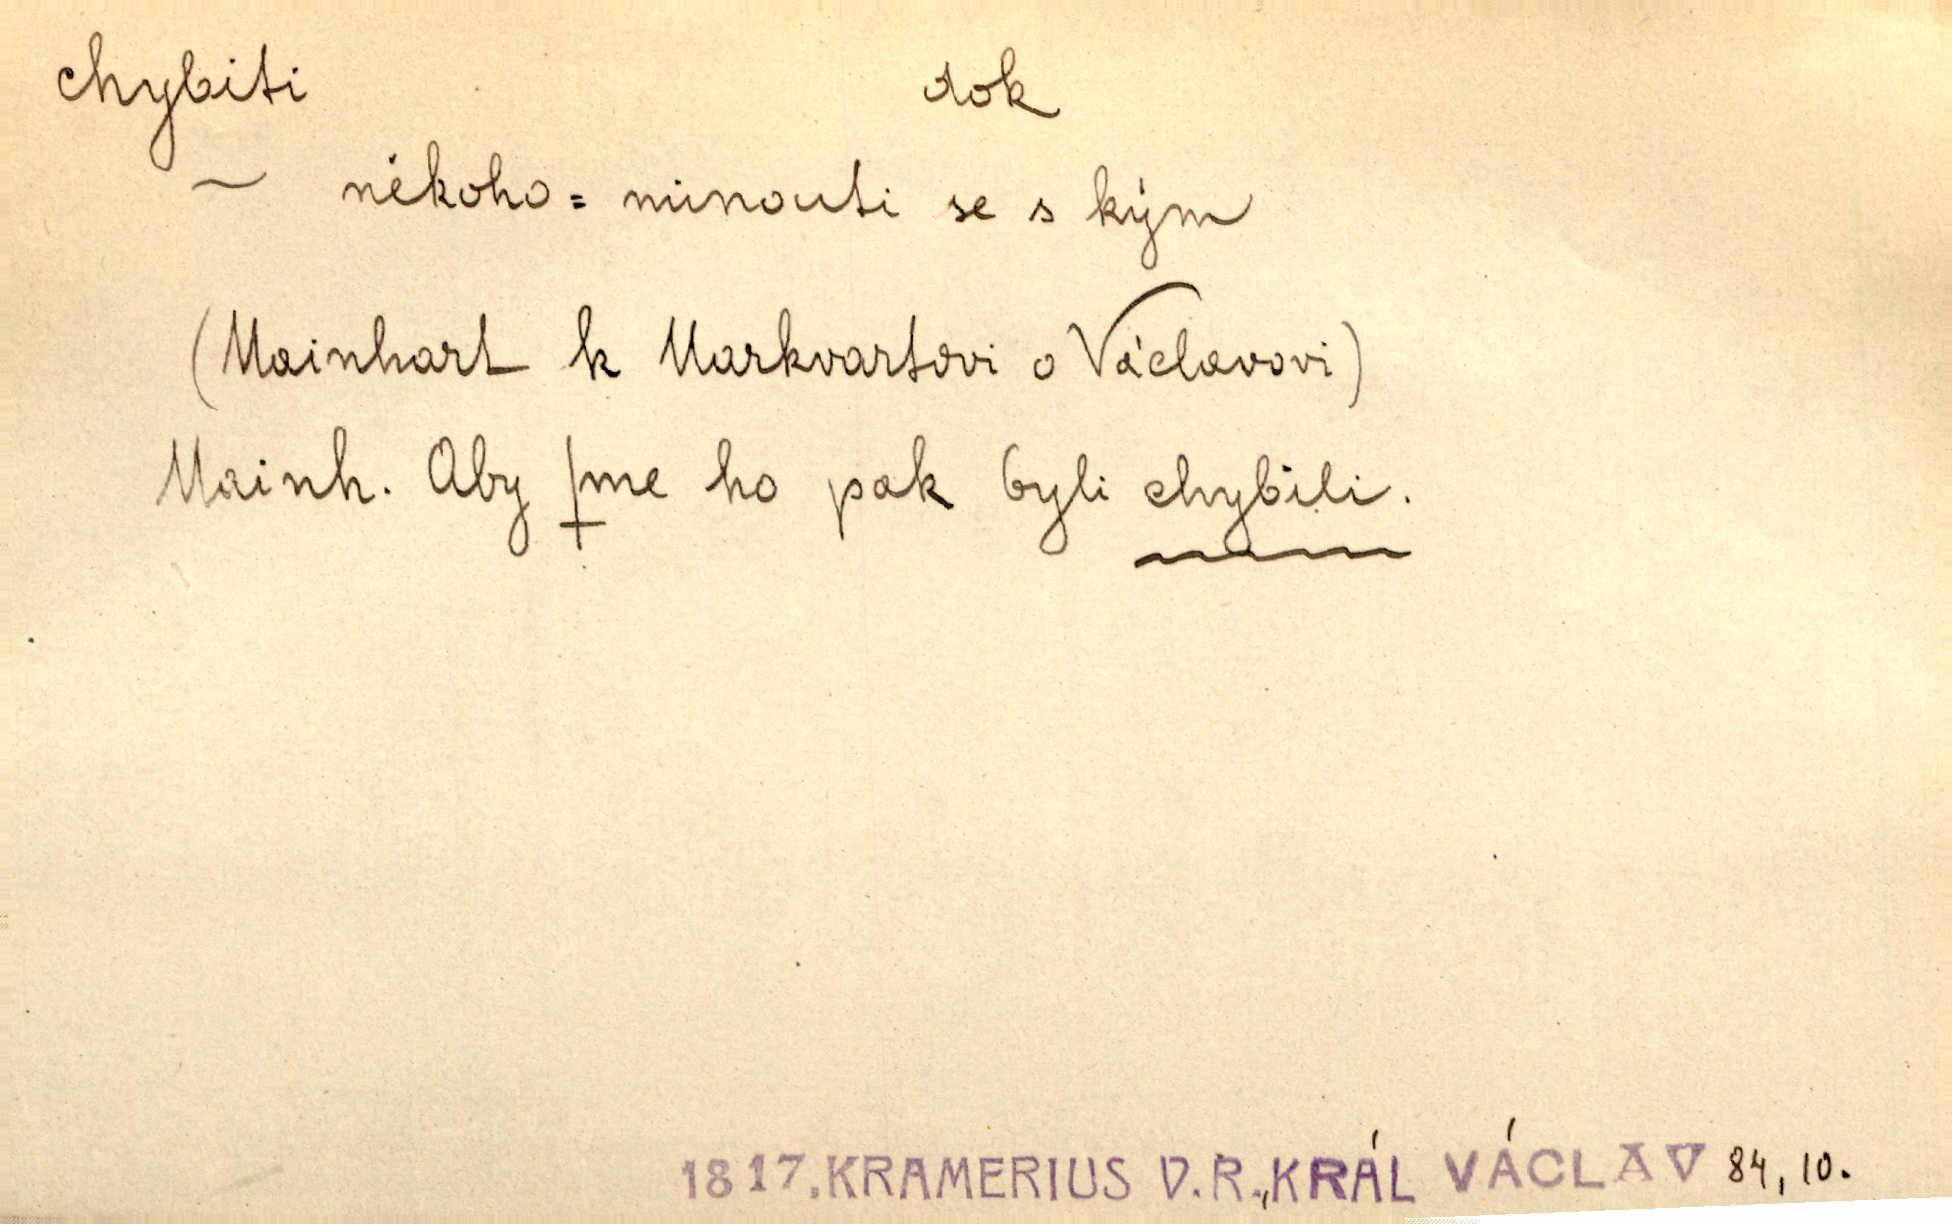 chybiti dok
~ někoho = minouti se s kým
(Mainhart k Markvartovi o Václavovi)
Mainh. Aby ſme ho pak byli chybili.
1817. KRAMERIUS V.R., KRÁL VÁCLAV 84, 10.